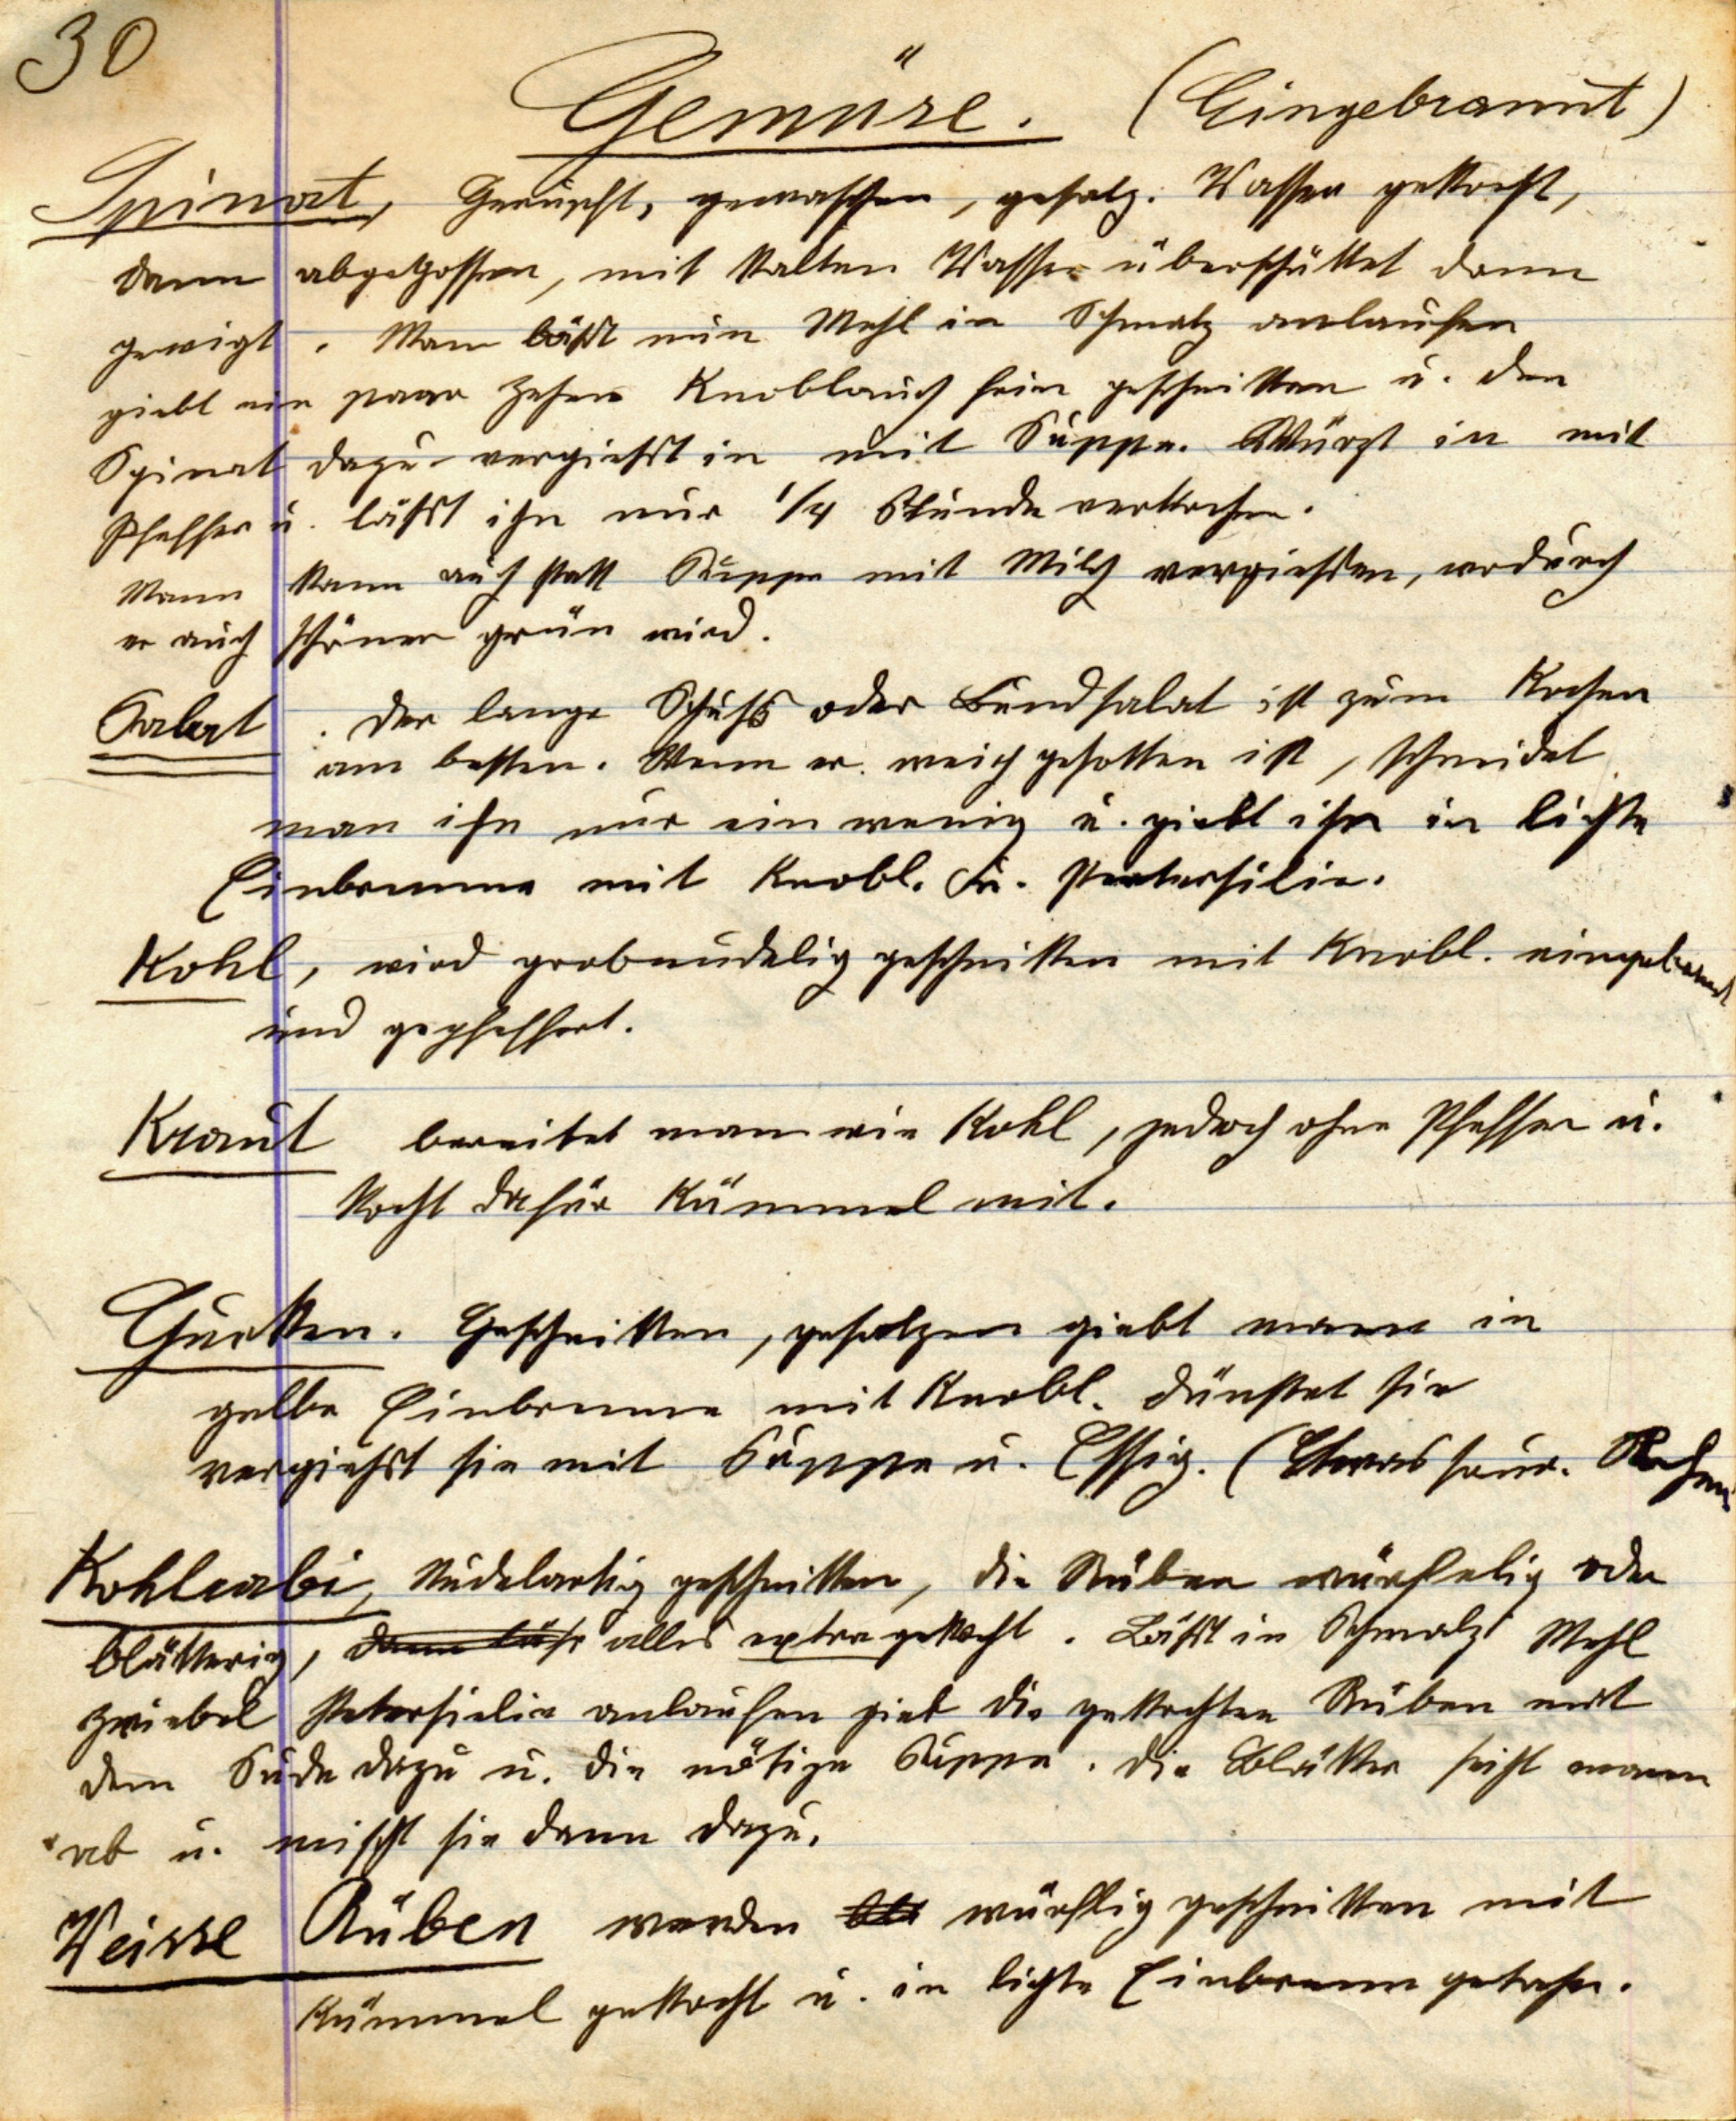 30
Gemüse. (Eingebrannt)
Spinat, Gerupft, gewaschen, gesalz. Wasser gekocht,
dann abgegossen, mit kalten Wasser überschüttet dann
gewigt. Man läßt nun Mehl in Schmalz anlaufen
giebt ein paar Zehen Knoblauch fein geschnitten u. den
Spinat dazu vergießt in mit Suppe. Würzt in mit
Pfeffer u. läßt ihn nur 1/4 Stunde verkochen.
Mann kann auch statt Suppe mit Milch vergießen, wodurch
er auch schöner grün wird.
Salat. Der lange Schuß oder Bundsalat ist zum Kochen
am besten. Wenn er weich gesotten ist, schneidet
man ihn nur ein wenig u. giebt ihn in lichte
Einbrenne mit Knobl. u. Petersilie.
Kohl, wird grobnudelig geschnitten mit Knobl. eingebrannt
und gepfeffert.
Kraut bereitet man wie Kohl, jedoch ohne Pfeffer u.
kocht dafür Kümmel mit.
Gurken. Geschnitten, gesalzen giebt mann in
gelbe Einbrenne mit Knobl. dünstet sie
vergießt sie mit Suppe u. Essig. (Etwas saur. Rahm
Kohlrabi, Nudelartig geschnitten, die Rüben würfelig oder
blätterig, alles extra gekocht. Läßt in Schmalz Mehl
Zwiebel Petersielie anlaufen gieb die gekochten Rüben mit
dem Sude dazu u. die nötige Suppe. Die Blätter seiht mann
ab u. mischt sie dann dazu.
Weisse Rüben werden würflig geschnitten mit
Kümmel gekocht u. in lichte Einbrenn getahn.